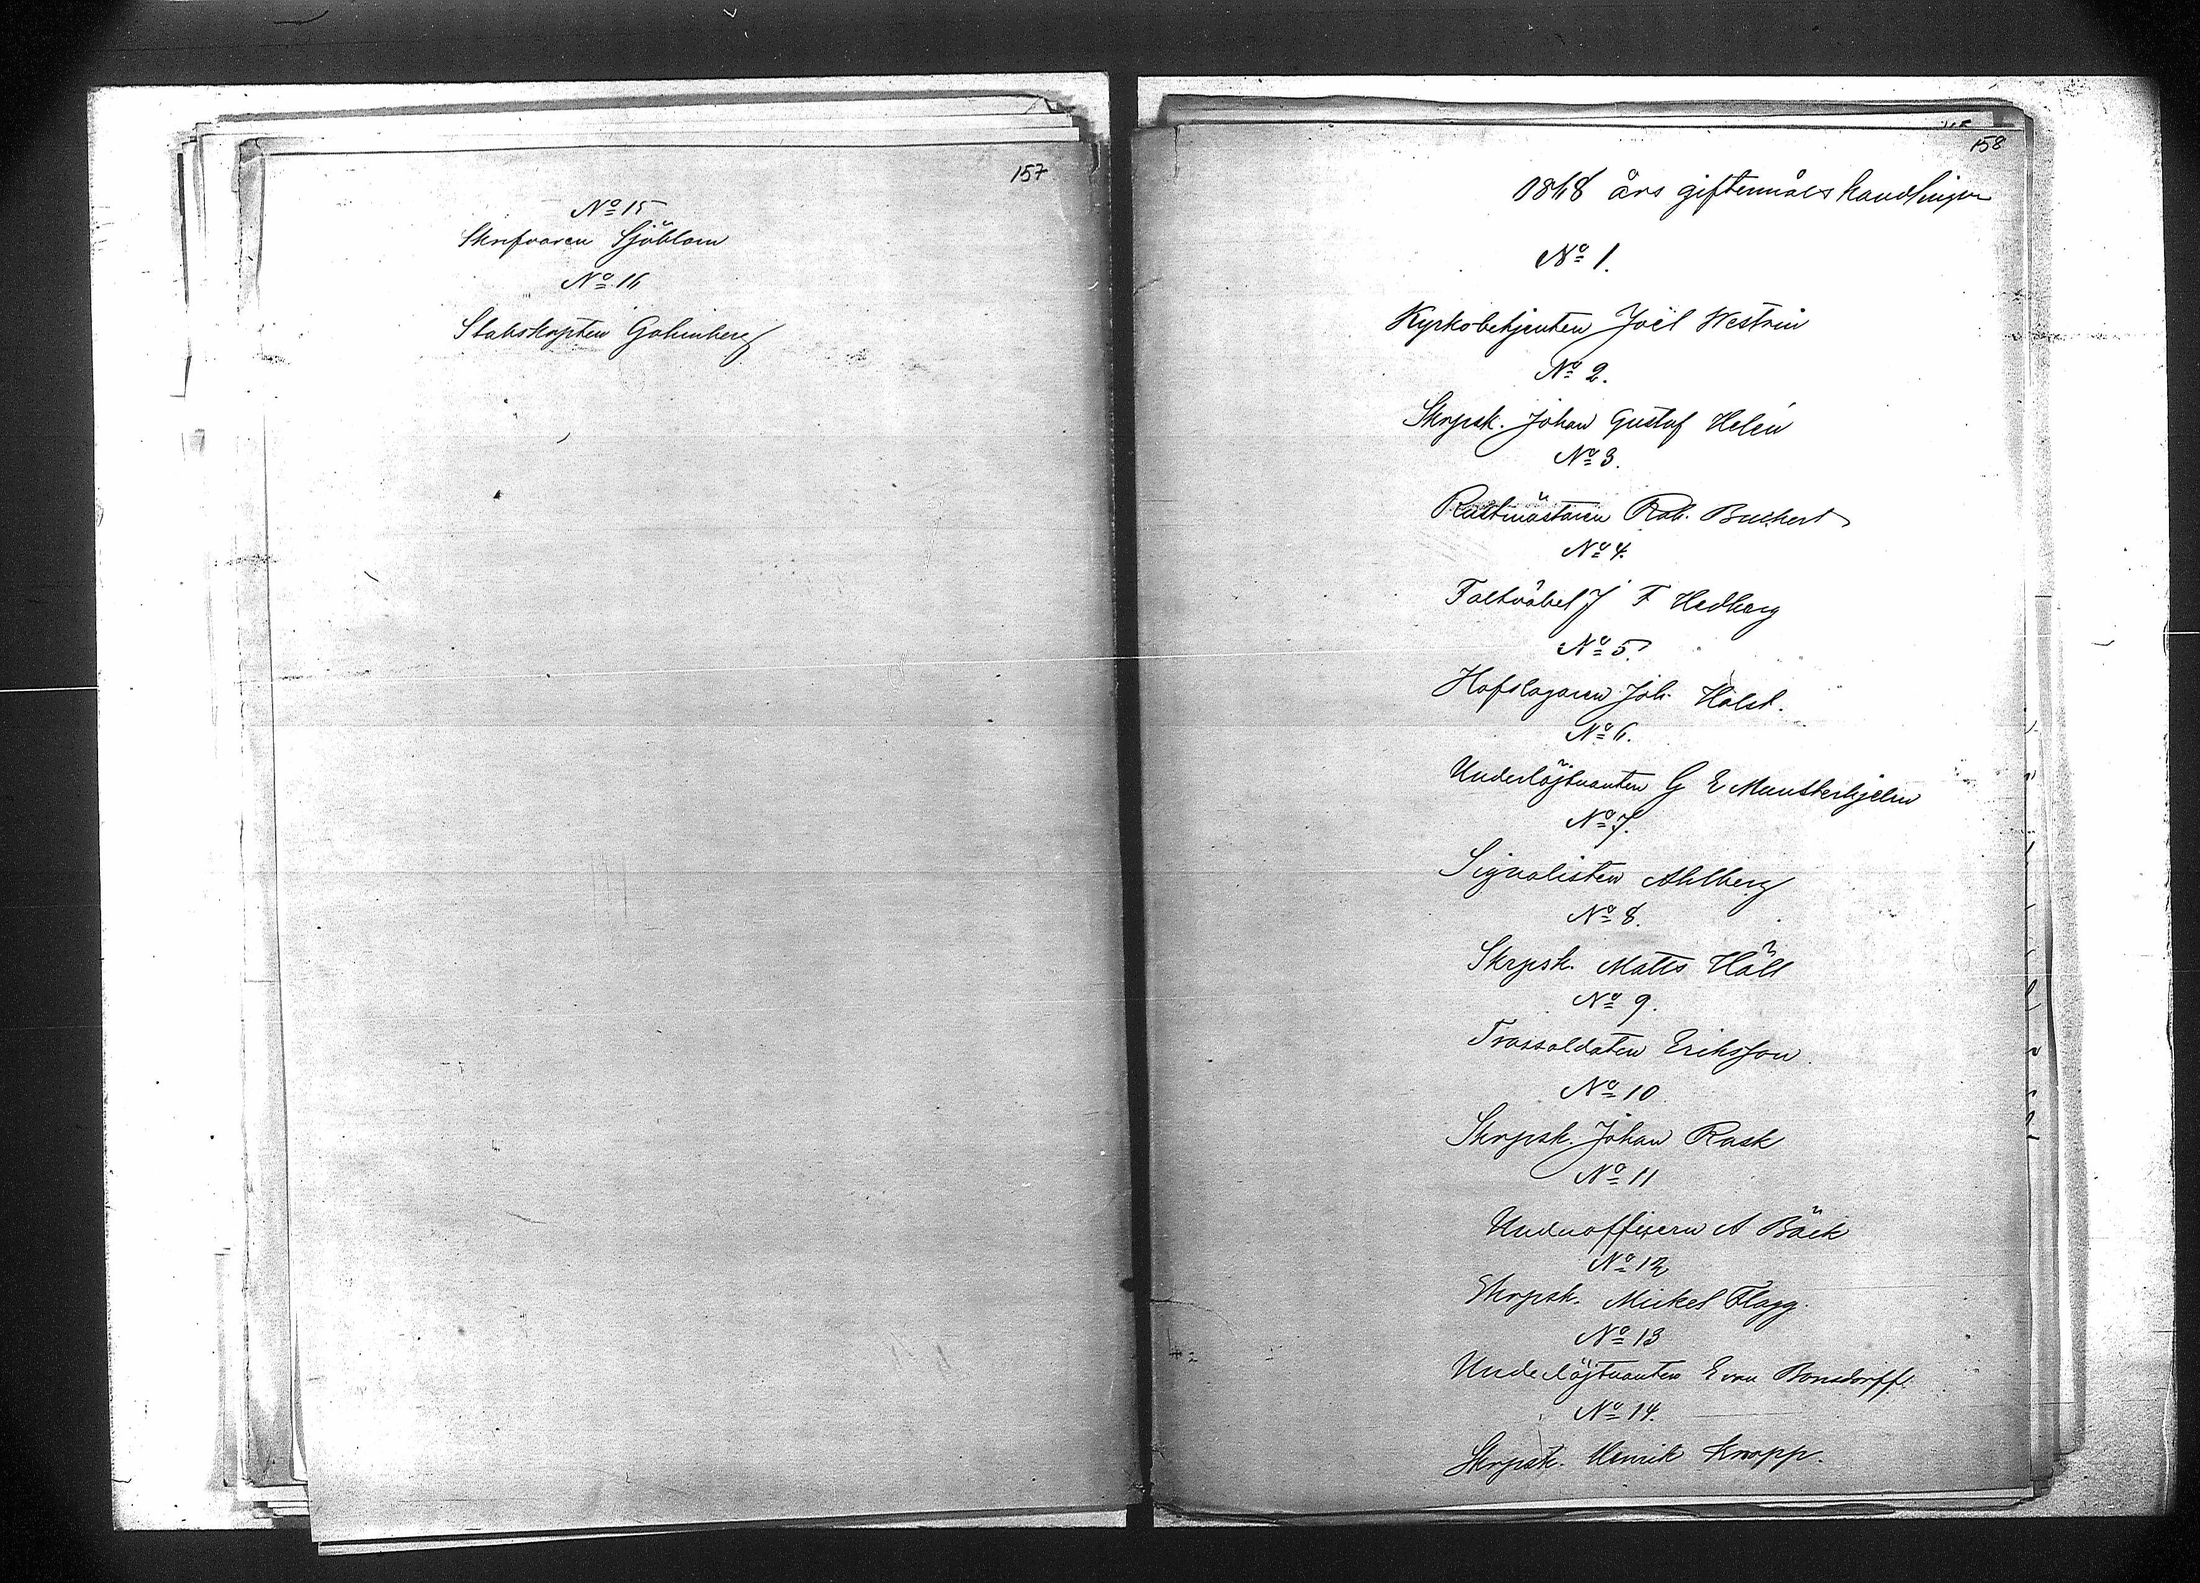 157
No 15
Skrifvaren Sjöblom
No 16
Stabskapten
158
1868 års giftermåls handlingar
No 1.
Kyrkobetjenten Joël Westrin
No 2.
Skrpsk. Johan Gustaf Helén
No 3.
Rustmästaren Rob. Buchert
No 4.
Faltväbel J F Hedberg
No 5.
Hofslagaren Joh. Holst.
No 6.
Underlöjtnanten G E Munsterhjelm
No 7.
Signalisten Ahlberg
No 8.
Skrpsk. Matts Häll
No 9.
Trossoldaten Eriksson
No 10
Skrpsk. Johan Rask
No 11
Underofficern A Bäck
No 12
Skrpsk. Mickel Flagg.
No 13
Underlöjtnanten E von Bonsdorff.
No 14.
Skrpsk. Henrik Knapp.